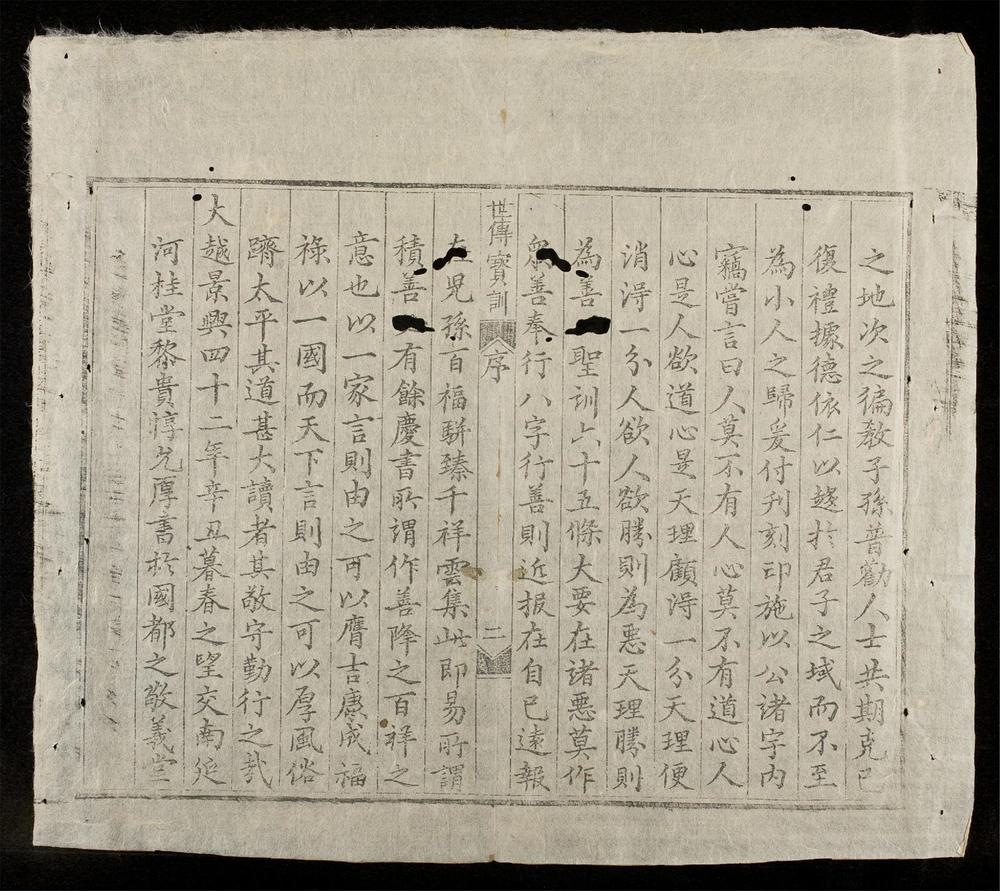 之地次之徧教子孫普勸人士共期克己
復禮據德依仁以趍於君子之域而不至
為小人之歸爰付刋刻印施以公諸字內
竊嘗言曰人莫不有人心莫不有道心人
心是人欲道心是天理顧淂一分天理便
消淂一分人欲人欲勝則為惡天理勝則
為善聖訓六十五條大要在諸惡莫作
眾善奉行八字行善則近报在自己遠報
世傳寶訓 序 二
在児孫百福駢臻千祥雲集此即易所謂
積善有餘慶書所謂作善降之百祥之
意也以一家言則由之可以膺吉康成福
祿以一國而天下言則由之可以厚風俗
躋太平其道甚大讀者其敬守勤行之哉
大越景興四十二年辛丑暮春之望交南延
河桂堂黎貴惇允厚書於國都之敬義堂